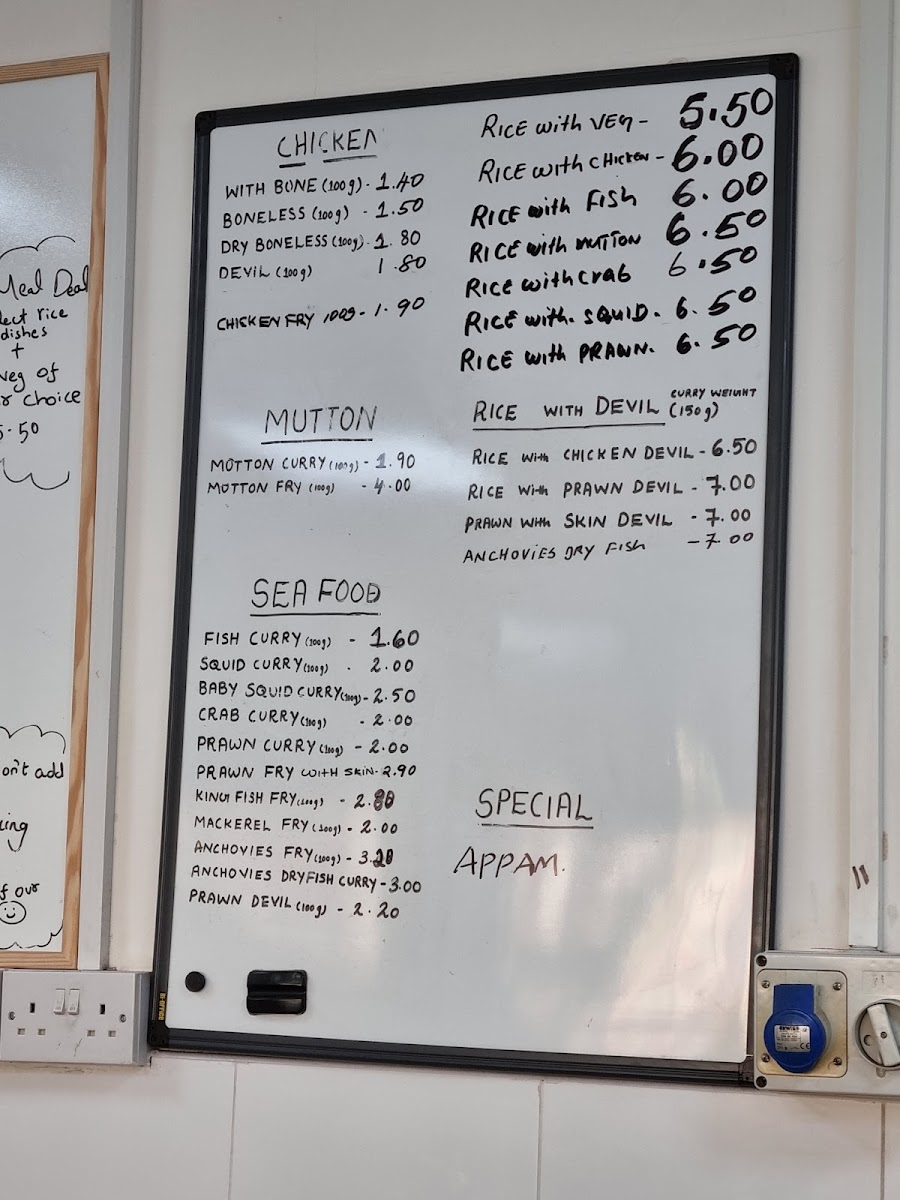 Meal Deal
lect rice
dishes
+
veg of
r choice
5.50
on't add
ing
f our
CHICKEN
WITH BONE (100g) - 1.40
BONELESS (100g) - 1.50
DRY BONELESS (100g) - 1.80
DEVIL (100g) 1.80
CHICKEN FRY 100g - 1.90
MUTTON
MUTTON CURRY (100g) - 1.90
MUTTON FRY (100g) - 4.00
SEA FOOD
FISH CURRY (100g) - 1.60
SQUID CURRY (100g) - 2.00
BABY SQUID CURRY (100g) - 2.50
CRAB CURRY (100g) - 2.00
PRAWN CURRY (100g) - 2.00
PRAWN FRY WITH SKIN - 2.90
KING FISH FRY (100g) - 2.80
MACKEREL FRY (100g) - 2.00
ANCHOVIES FRY (100g) - 3.20
ANCHOVIES DRYFISH CURRY - 3.00
PRAWN DEVIL (100g) - 2.20
RICE with VEG - 5.50
RICE with CHICKEN - 6.00
RICE with FISH 6.00
RICE with MUTTON 6.50
RICE with CRAB 6.50
RICE with. SQUID. 6.50
RICE with PRAWN. 6.50
RICE WITH DEVIL CURRY WEIGHT (150g)
RICE with CHICKEN DEVIL - 6.50
RICE with PRAWN DEVIL - 7.00
PRAWN WITH SKIN DEVIL - 7.00
ANCHOVIES DRY FISH - 7.00
SPECIAL
APPAM.